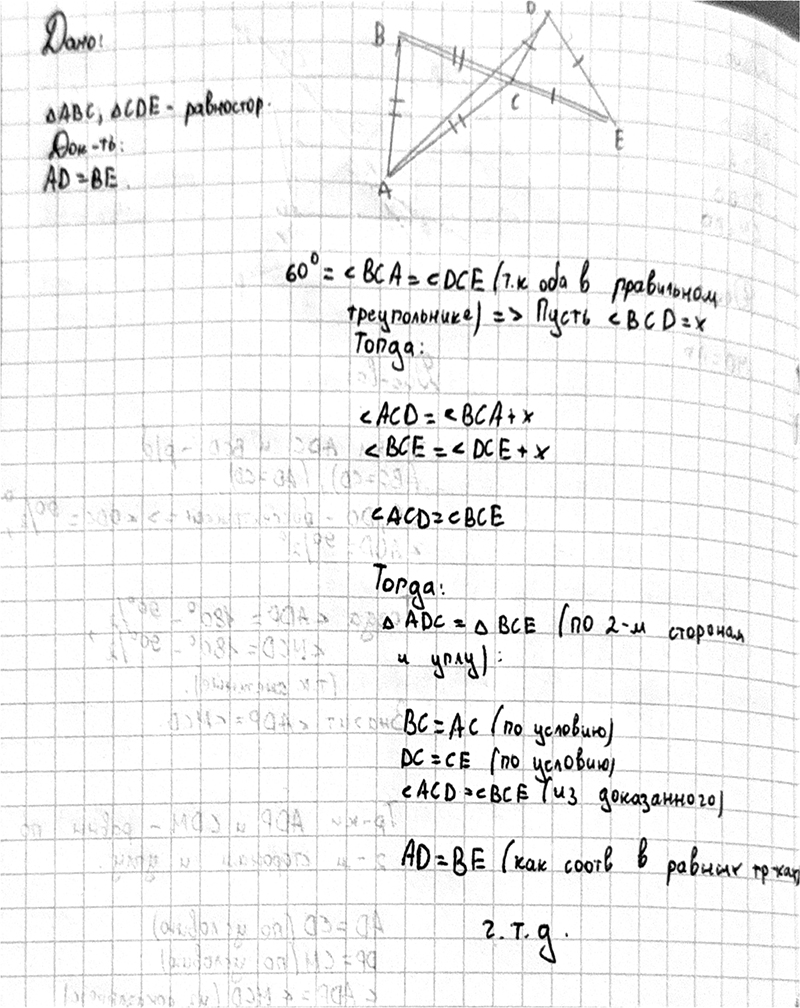 Дано:
B
D
C
E
A
△ABC, △CDE - равностор.
Док-ть:
AD=BE.
60° = <BCA = <DCE (т.к оба в правильном
треугольнике) => Пусть <BCD=x
Тогда:
<ACD = <BCA+x
<BCE = <DCE+x
<ACD=<BCE
Тогда:
△ ADC = △ BCE (по 2-м сторонам
и углу):
BC=AC (по условию)
DC=CE (по условию)
<ACD=<BCE (из доказанного)
AD=BE (как соотв в равных тр-ках)
ч.т.д.